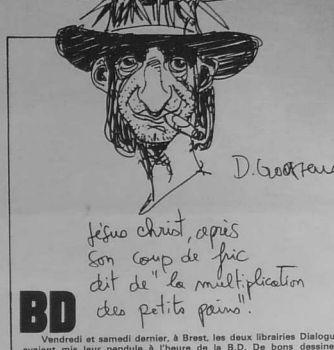 D. Goossens
Jésus christ, après
son coup de fric
dit de "la multiplication
des petits pains".
BD
Vendredi et samedi dernier, à Brest, les deux librairies Dialogu
avaient mis leur pendule à l'heure de la B.D. De bons dessine